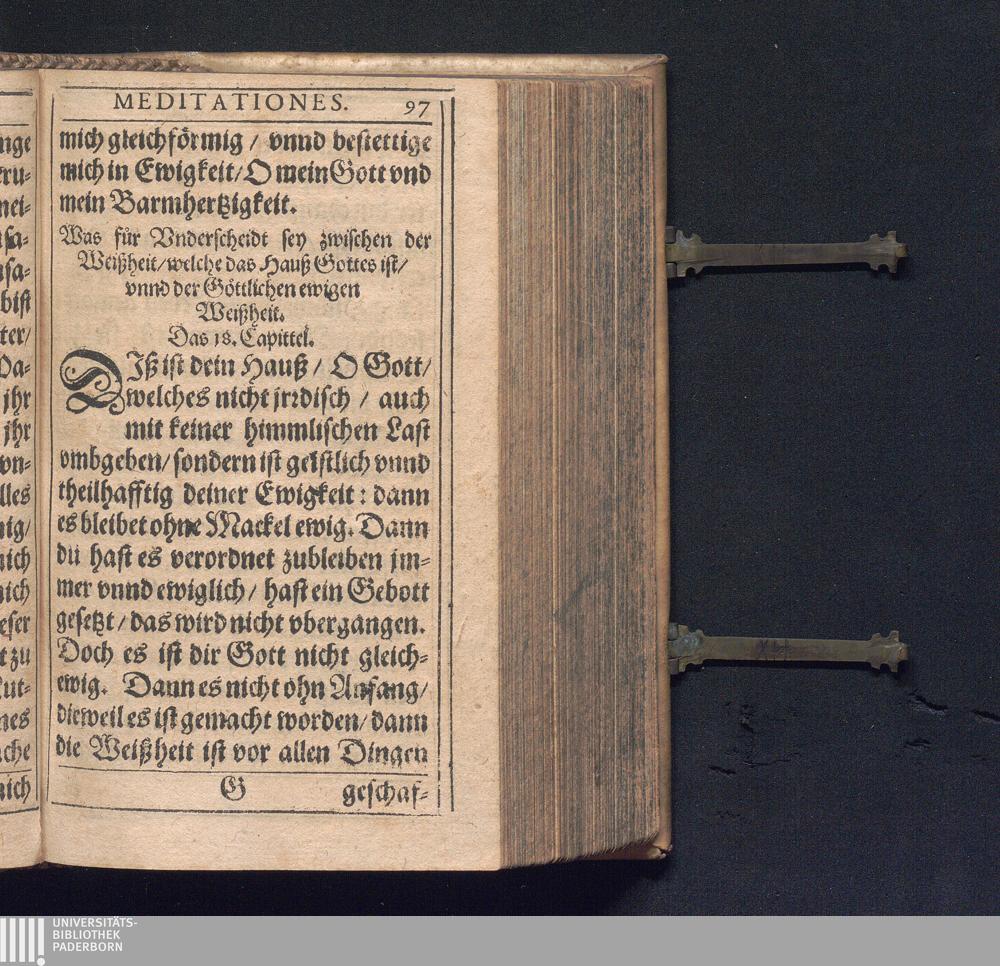 MEDITATIONES. 97
mich gleichförmig / vnnd bestettige
mich in Ewigkeit / O mein Gott vnd
mein Barmhertzigkeit.
Was für Vnderscheidt sey zwischen der
Weißheit / welche das Hauß Gottes ist /
vnnd der Göttlichen ewigen
Weißheit.
Das 18. Capittel.
DIß ist dein Hauß / O Gott /
welches nicht jrrdisch / auch
mit keiner himmlischen Last
vmbgeben / sondern ist geistlich vnnd
theilhafftig deiner Ewigkeit : dann
es bleibet ohne Mackel ewig. Dann
du hast es verordnet zubleiben jm-
mer vnnd ewiglich / hast ein Gebott
gesetzt / das wird nicht vbergangen.
Doch es ist dir Gott nicht gleich-
ewig. Dann es nicht ohn Anfang /
dieweil es ist gemacht worden / dann
die Weißheit ist vor allen Dingen
G geschaf-
nge
eru-
mei-
sa-
nsa-
bist
ter /
Da-
jhr
jhr
vn-
lles
nig /
nich
nich
eser
t zu
kut-
nes
ache
nich
UNIVERSITÄTS-
BIBLIOTHEK
PADERBORN